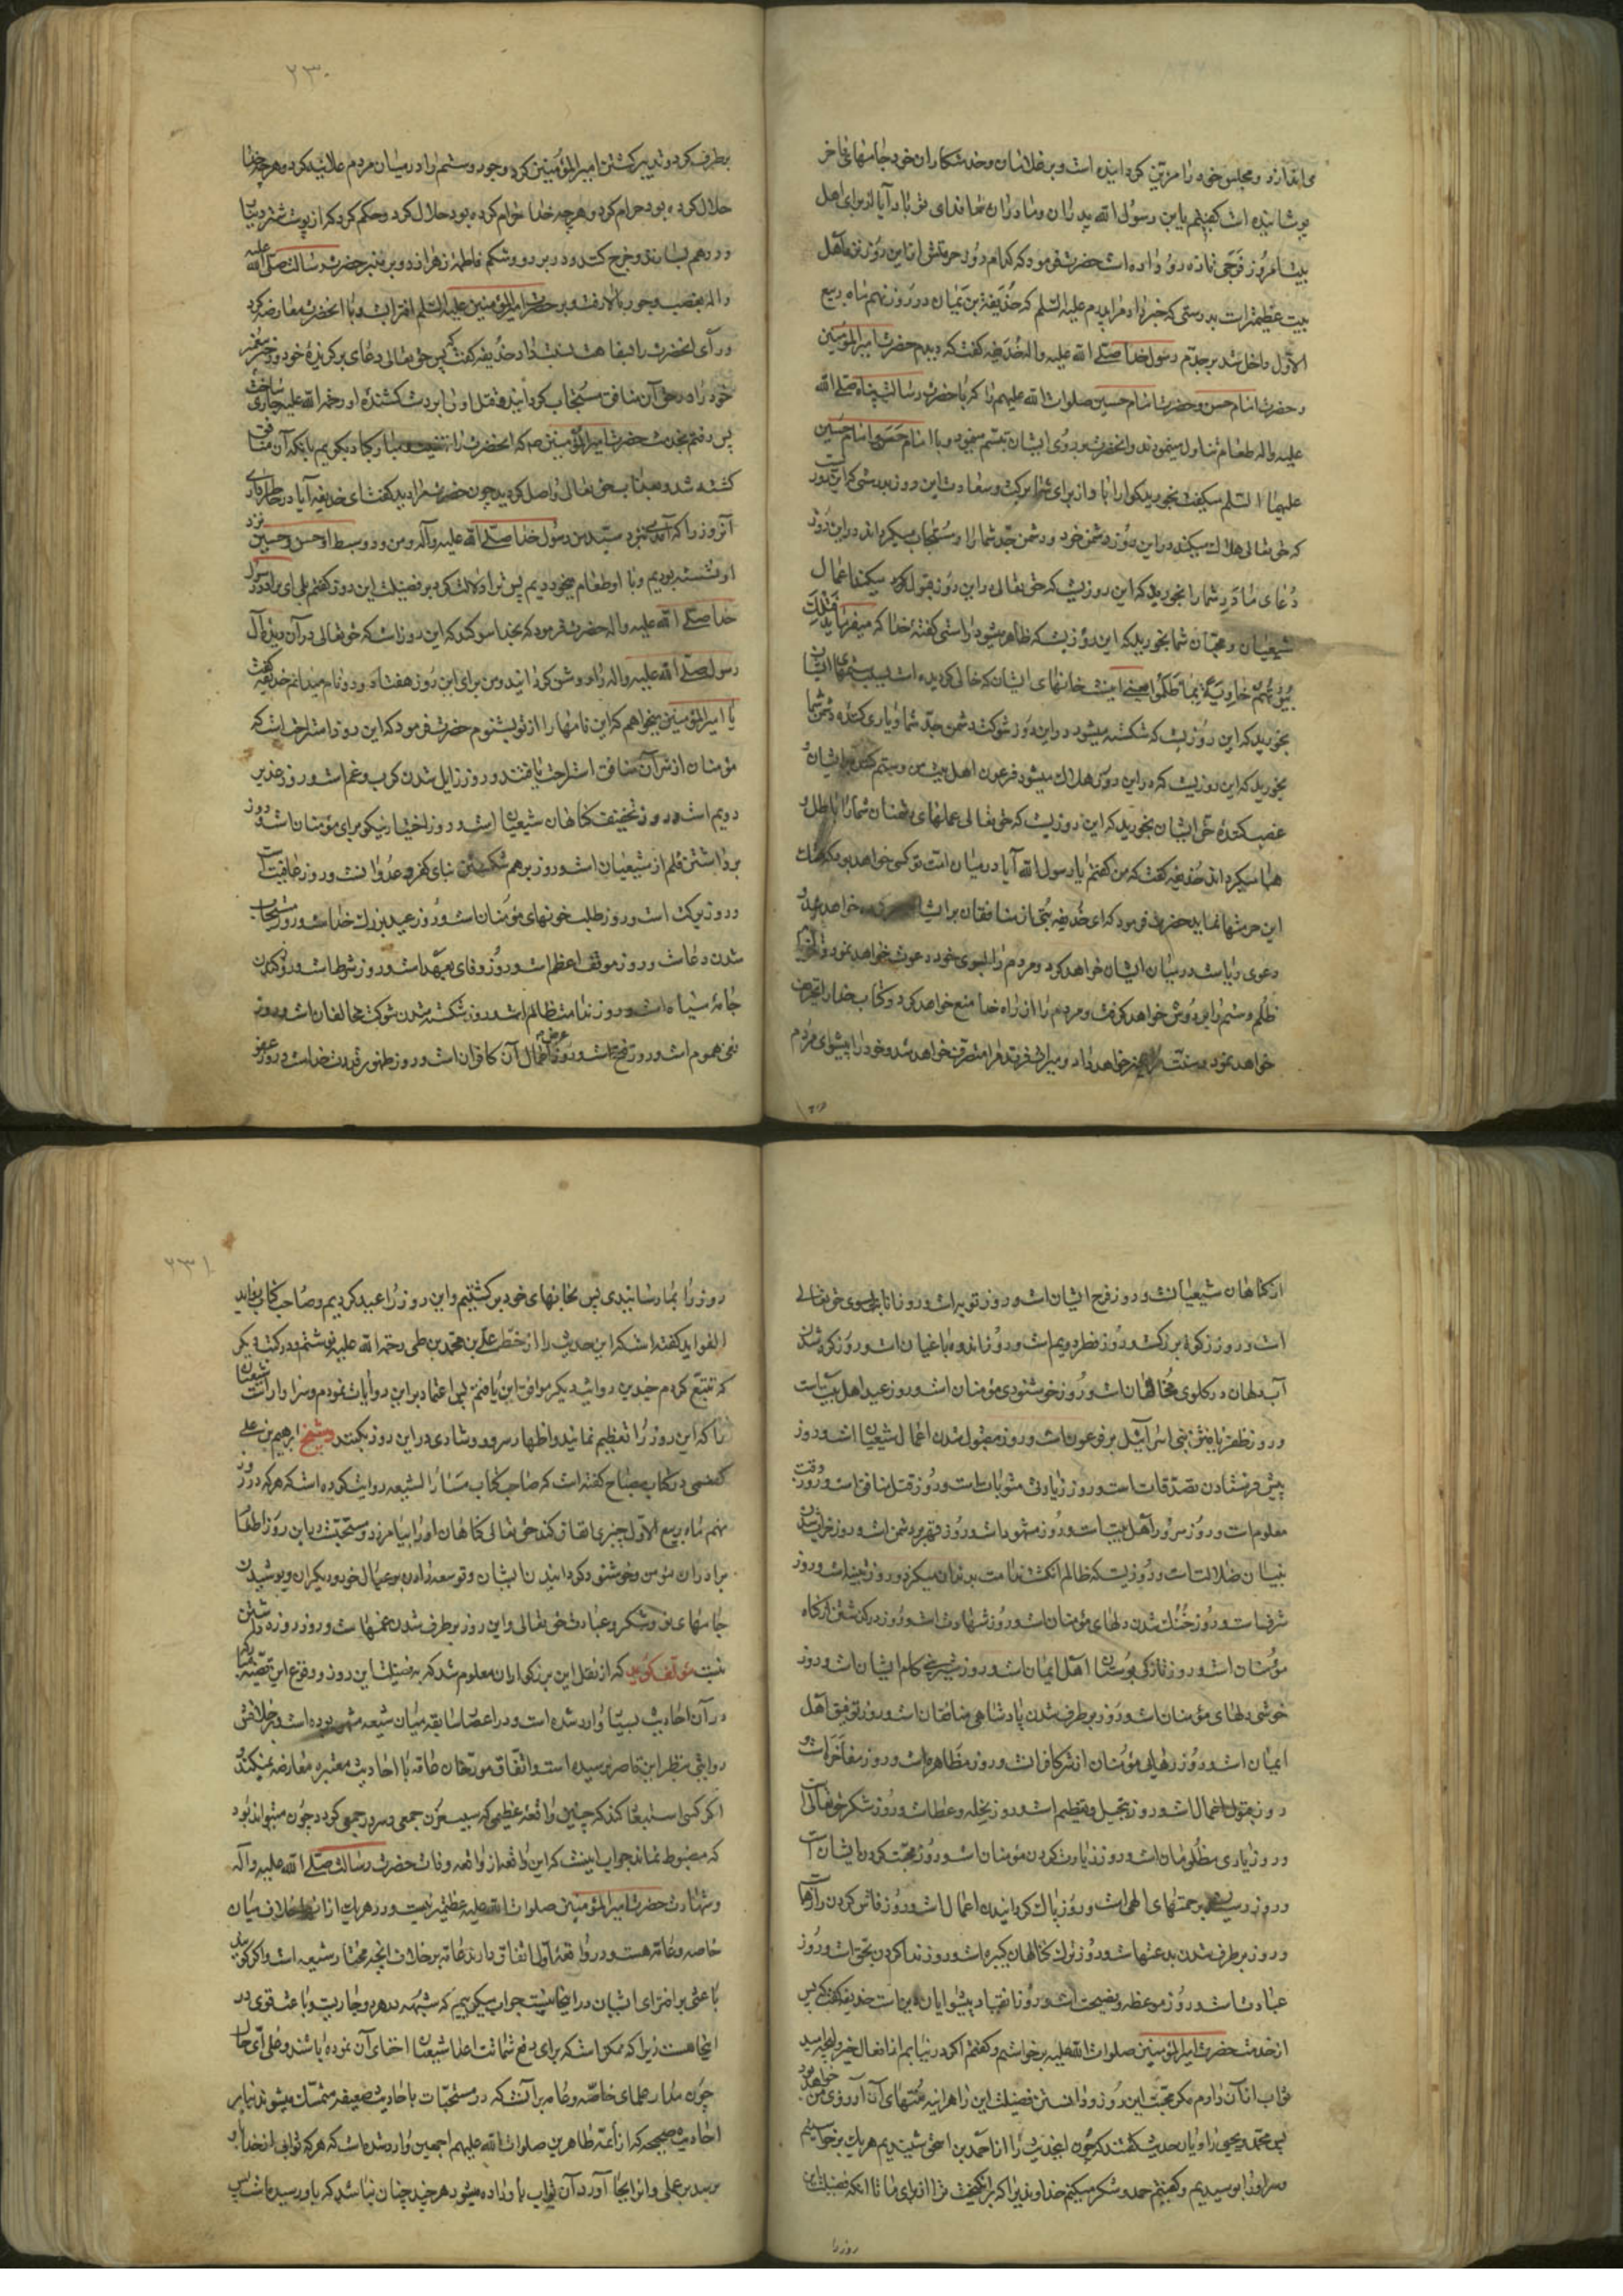 می‌اندازد و مجلس خود را مزین گردانیده است و بر غلامان و خدمتکاران خود جامهای فاخر
پوشانیده است گفتیم یا بن رسول الله پدران و مادران ما فدای تو باد آیا از برای اهل
بیت امروز فرحی تازه رو داده است حضرت فرمود که کدام روز حرمتش از این روز نزد اهل
بیت عظیمتر است بدرستی که خبر داد مرا پدرم علیه السلم که حذیفة بن یمان در روز نهم ماه ربیع
الاول داخل شد بر جدم رسول خدا صلی الله علیه و اله حذیفه گفت که دیدم حضرت امیر المؤمنین
و حضرت امام حسن و حضرت امام حسین صلوات الله علیهم را که با حضرت رسالت پناه صلی الله
علیه و اله طعام تناول مینمودند و انحضرت بر روی ایشان تبسم مینمود و با امام حسن و امام حسین
علیهما السلم میگفت بخورید گوارا باد از برای شما برکت و سعادت این روز بدرستی که این روزیست
که حق تعالی هلاک میکند در این روز دشمن خود و دشمن جد شما را و مستجاب میگرداند در این روز
دعای مادر شما را بخورید که این روزیست که حق تعالی در این روز قبول میکند اعمال
شیعیان و محبان شما بخورید که این روزیست که ظاهر میشود راستی گفتۀ خدا که میفرماید فتلک
بیوتهم خاویة بما ظلموا یعنی اینست خانهای ایشان که خالی گردیده است بسبب ستمهای ایشان
بخورید که این روزیست که شکسته میشود در این روز شوکت دشمن جد شما و یاری کننده دشمن شما
بخورید که این روزیست که در این روز هلاک میشود فرعون اهل بیت من و ستم کننده بر ایشان و
غصب کنندۀ حق ایشان بخورید که این روزیست که حق تعالی عملهای دشمنان شما را باطل و
هبا میگرداند حذیفه گفت که من گفتم یا رسول الله آیا در میان امت تو کسی خواهد بود که هتک
این حرمتها نماید حضرت فرمود که ای حذیفه بتی از منافقان بر ایشان خواهد شد و
دعوی ریاست در میان ایشان خواهد کرد و مردم را بسوی خود دعوت خواهد نمود و تازیانۀ
ظلم و ستم را بر دوش خواهد گرفت و مردم را از راه خدا منع خواهد کرد و کتاب خدا را تحریف
خواهد نمود و سنت مرا تغییر خواهد داد و میراث فرزند مرا متصرف خواهد شد و خود را پیشوای مردم
۲۳۰
بطرف کرد و تدبیر کشتن امیر المؤمنین کرد و جور و ستم را در میان مردم علانیه کرد و هر چه خدا
حلال کرده بود حرام کرد و هر چه خدا حرام کرده بود حلال کرد و حکم کرد که از پوست شتر دینار
و درهم بسازند و خرج کنند و در بر رو و شکم فاطمۀ زهرا زد و بر منبر حضرت رسالت صلی الله علیه
و اله بغصب و جور بالا رفت و بر حضرت امیر المؤمنین علیه السلم افترا بست و با انحضرت معارضه کرد
و رأی انحضرت را بسفاهت نسبت داد حذیفه گفت که پس حق تعالی دعای برگزیدۀ خود و دختر پیغمبر
خود را در حق آن منافق مستجاب گردانید و قتل او را بر دست کشندۀ او رحمه الله علیه جاری ساخت
پس رفتم بخدمت حضرت امیر المؤمنین ص که انحضرت را تهنیت و مبارکباد بگویم بانکه آن منافق
کشته شد و بعذاب حق تعالی واصل گردید چون حضرت مرا دید گفت ای حذیفه آیا در خاطر داری
آنروز را که آمدی بنزد سید من رسول خدا صلی الله علیه و آله و من و دو سبط او حسن و حسین نزد
او نشسته بودیم و با او طعام میخوردیم پس ترا دلالت کرد بر فضیلت این روز گفتم بلی ای برادر رسول
خدا صلی الله علیه و اله حضرت فرمود که بخدا سوگند که این روزاست که حق تعالی در آن دیدۀ آل
رسول صلی الله علیه و اله را روشن گردانید و من برای این روز هفتاد و دو نام میدانم حذیفه گفت
یا امیر المؤمنین میخواهم که این نامها را از تو بشنوم حضرت فرمود که این روز استراحت است که
مؤمنان از شر آن منافق استراحت یافتند و روز زایل شدن کرب و غم است و روز غدیر
دویم است و روز تخفیف گناهان شیعیان است و روز اختیار نیکو برای مؤمنان است و روز
برداشتن قلم از شیعیان است و روز بر هم شکستن بنای کفر و عدوانست و روز عافیت است
و روز برکت است و روز طلب خونهای مؤمنان است و روز عید بزرگ خداست و روز مستجاب
شدن دعاست و روز موقف اعظم است و روز وفای بعهد است و روز شرط است و روز کندن
جامۀ سیاه است و روز ندامت ظالم است و روز شکسته شدن شوکت مخالفان است و روز
نفی هموم است و روز فتح است و روز عرض اعمال آن کافران است و روز ظهور قدرت خداست و روز عفو
از گناهان شیعیانست و روز فرح ایشان است و روز توبه است و روز انابه بسوی حق تعالی
است و روز زکوة بزرگ است و روز فطر دویم است و روز اندوه باغیان است و روز گره شدن
آب دهان در گلوی مخالفان است و روز خوشنودی مؤمنان است و روز عید اهل بیت است
و روز ظفر یافتن بنی اسرائیل بر فرعون است و روز مقبول شدن اعمال شیعیان است و روز
پیش فرستادن تصدقات است و روز زیادتی مثوبات است و روز قتل منافق است و روز وقت
معلوم است و روز سرور اهل بیت است و روز مشهود است و روز قهر بر دشمن است و روز خراب شدن
بنیان ضلالت است و روزیست که ظالم انگشت ندامت بدندان میگزد و روز تنبیه است و روز
شرف است و روز خنک شدن دلهای مؤمنان است و روز شهادت است و روز درگذشتن از گناه
مؤمنان است و روز تازگی بوستان اهل ایمان است و روز شیرینی کام ایشان است و روز
خوشی دلهای مؤمنان است و روز برطرف شدن پادشاهی منافقان است و روز توفیق اهل
ایمان است و روز رهایی مؤمنان از شر کافران است و روز مظاهره است و روز مفاخره است و
روز قبول اعمال است و روز تبجیل و تعظیم است و روز نحله و عطاست و روز شکر حق تعالی است
و روز یاری مظلومان است و روز زیارت کردن مؤمنان است و روز محبت کردن ایشان است
و روز رسیدن برحمتهای الهی است و روز پاک گردانیدن اعمال است و روز فاش کردن رازهاست
و روز برطرف شدن بدعتهاست و روز ترک گناهان کبیره است و روز ندا کردن بحق است و روز
عبادت است و روز موعظه و نصیحت است و روز انقیاد پیشوایان دین است حذیفه گفت که پس
از خدمت حضرت امیر المؤمنین صلوات الله علیه برخواستم و گفتم اگر در نیابم از افعال خیر و آنچه امید
ثواب از آن دارم مگر محبت این روز و دانستن فضیلت این را هر اینه منتهای آرزوی من خواهد بود
پس محمد و یحیی راویان حدیث گفتند که چون این حدیث را از احمد بن اسحق شنیدیم هر یک برخواستیم
و سر او را بوسیدیم و گفتیم حمد و شکر میکنیم خداوندی را که برانگیخت ترا از برای ما تا انکه فضیلت این
روز را
۲۳۱
روز را بما رسانیدی پس بخانهای خود برگشتیم و این روز را عید کردیم و صاحب کتاب زواید
الفواید گفته است که این حدیث را از خط علی بن محمد بن طی رحمه الله علیه نوشتم و در کتب دیگر
که تتبع کردم چندین روایت دیگر موافق این یافتم پس اعتماد بر این روایات نمودم و سزاوار است شیعیان
را که این روز را تعظیم نمایند و اظهار سرور و شادی در این روز بکنند و شیخ ابرهیم بن علی
کفعمی در کتاب مصباح گفته است که صاحب کتاب مسار الشیعه روایت کرده است که هر که در روز
نهم ماه ربیع الاول چیزی انفاق کند حق تعالی گناهان او را بیامرزد و سنتست در این روز اطعام
برادران مؤمن و خوشنود گردانیدن ایشان و توسعه دادن بر عیال خود و دیگران و پوشیدن
جامهای نو و شکر و عبادت حق تعالی و این روز برطرف شدن غمهاست و روز روزه داشتن
نیست مؤلف گوید که از نقل این بزرگواران معلوم شد که بر فضیلت این روز و وقوع این قضیه
در آن احادیث بسیار وارد شده است و در اعصار سابقه میان شیعه مشهور بوده است و خلافش
روایتی بنظر این قاصر نرسیده است و اتفاق مورخان عامه با احادیث معتبره معارضه نمیکند و
اگر کسی استبعاد کند که چنین واقعۀ عظیمی که
که مضبوط نماند جواب اینست که این واقعه از واقعه وفات حضرت رسالت صلی الله علیه و اله
و شهادت حضرت امیر المؤمنین صلوات الله علیه عظیمتر نیست و در هر یک از آنها خلاف میان
خاصه و عامه هست و در واقعۀ اول اتفاق دارند عامه بر خلاف انچه مختار شیعه است و اگر گویند
باعثی بر افترای ایشان در اینجا نیست جواب میگوییم که شبهه در هر دو جاریست و باعث قوی در
اینجا هست زیرا که ممکن است که برای دفع شماتت اعدا شیعیان اخفای آن نموده باشند و علی ای حال
چون مدار علمای خاصه و عامه بر آنست که در مستحبات باحادیث ضعیفه متمسک میشوند بنابر
احادیث صحیحه که از ائمه طاهرین صلوات الله علیهم اجمعین وارد شده است که هر که ثوابی از خدا باو
برسد بر عملی و انرا بجا آورد آن ثواب باو داده میشود هر چند چنان نباشد که باو رسیده است پس